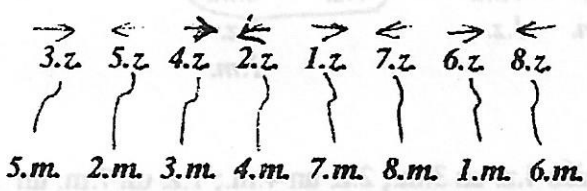 3.z. 5.z. 4.z. 2.z. 1.z. 7.z. 6.z. 8.z.
5.m. 2.m. 3.m. 4.m. 7.m. 8.m. 1.m. 6.m.